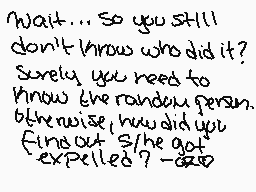 Wait... So you still
don't know who did it?
Surely you need to
know the random person.
Otherwise, how did you
find out s/he got
expelled? -